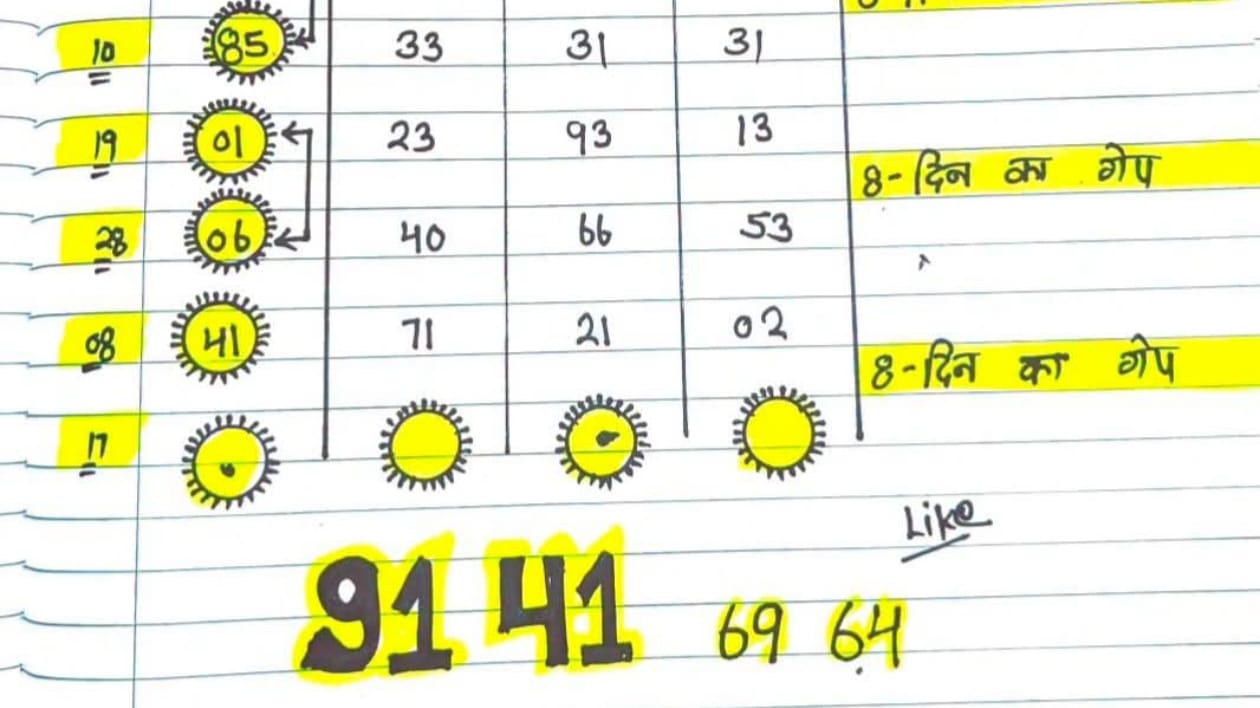 10 85 33 31 31
19 01 23 93 13
8-दिन का गेप
28 06 40 66 53
08 41 71 21 02
8-दिन का गेप
17
Like
91 41 69 64